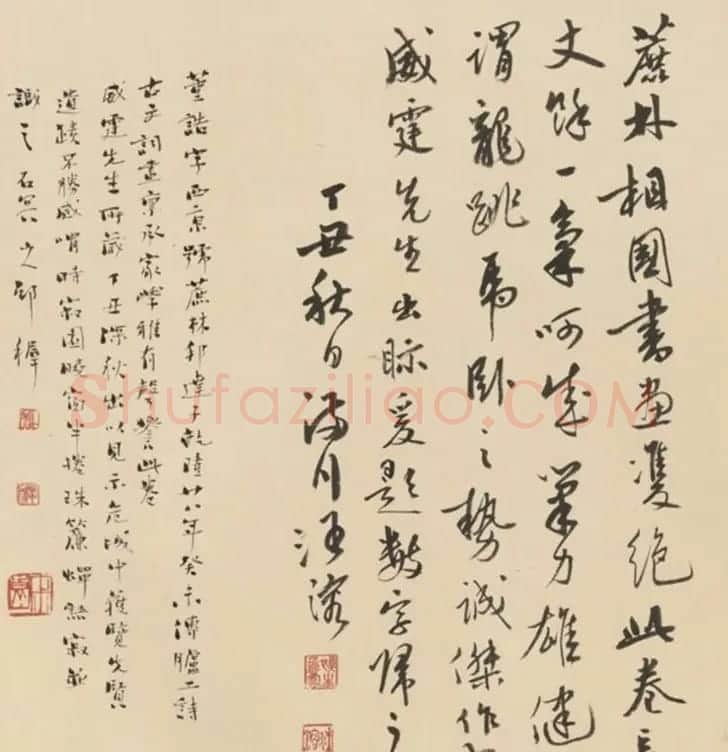 蔗林相國書畫雙絕此卷
丈餘一氣呵成筆力雄健
謂龍跳虎臥之勢誠傑作
威霆先生出眎爰題數字歸之
丁丑秋日滌川汪溶
董誥字西京號蔗林邦達子乾隆廿八年癸未傳臚工詩
古文詞畫稟承家學雅有聲譽此卷
威霆先生所藏丁丑深秋出以見示危城中獲覽先賢
遺蹟不勝感喟時寂園曉窗半捲珠簾
識之石冥山人邱穉
Shufaziliao.COM